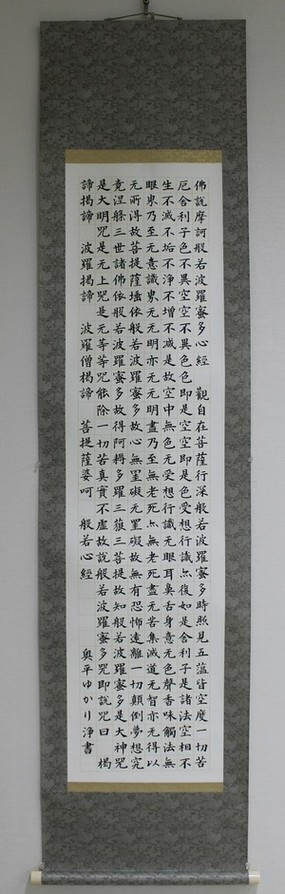 佛説摩訶般若波羅蜜多心経 觀自在菩薩行深般若波羅蜜多時照見五蘊皆空度一切苦
厄舍利子色不異空空不異色色即是空空即是色受想行識亦復如是舍利子是諸法空相不
生不滅不垢不浄不增不減是故空中無色无受想行識无眼耳鼻舌身意无色聲香味觸法無
眼界乃至无意識界无无明亦无无明盡乃至無老死亦無老死盡无苦集滅道无智亦无得以
无所得故菩提薩埵依般若波羅蜜多故心無罣礙无罣礙故無有恐怖遠離一切顛倒夢想究
竟涅槃三世諸佛依般若波羅蜜多故得阿耨多羅三藐三菩提故知般若波羅蜜多是大神咒
是大明咒是无上咒是无等等咒能除一切苦真實不虚故説般若波羅蜜多咒即説咒曰 揭
諦揭諦 波羅揭諦 波羅僧揭諦 菩提薩婆呵 般若心経 奥平ゆかり浄書